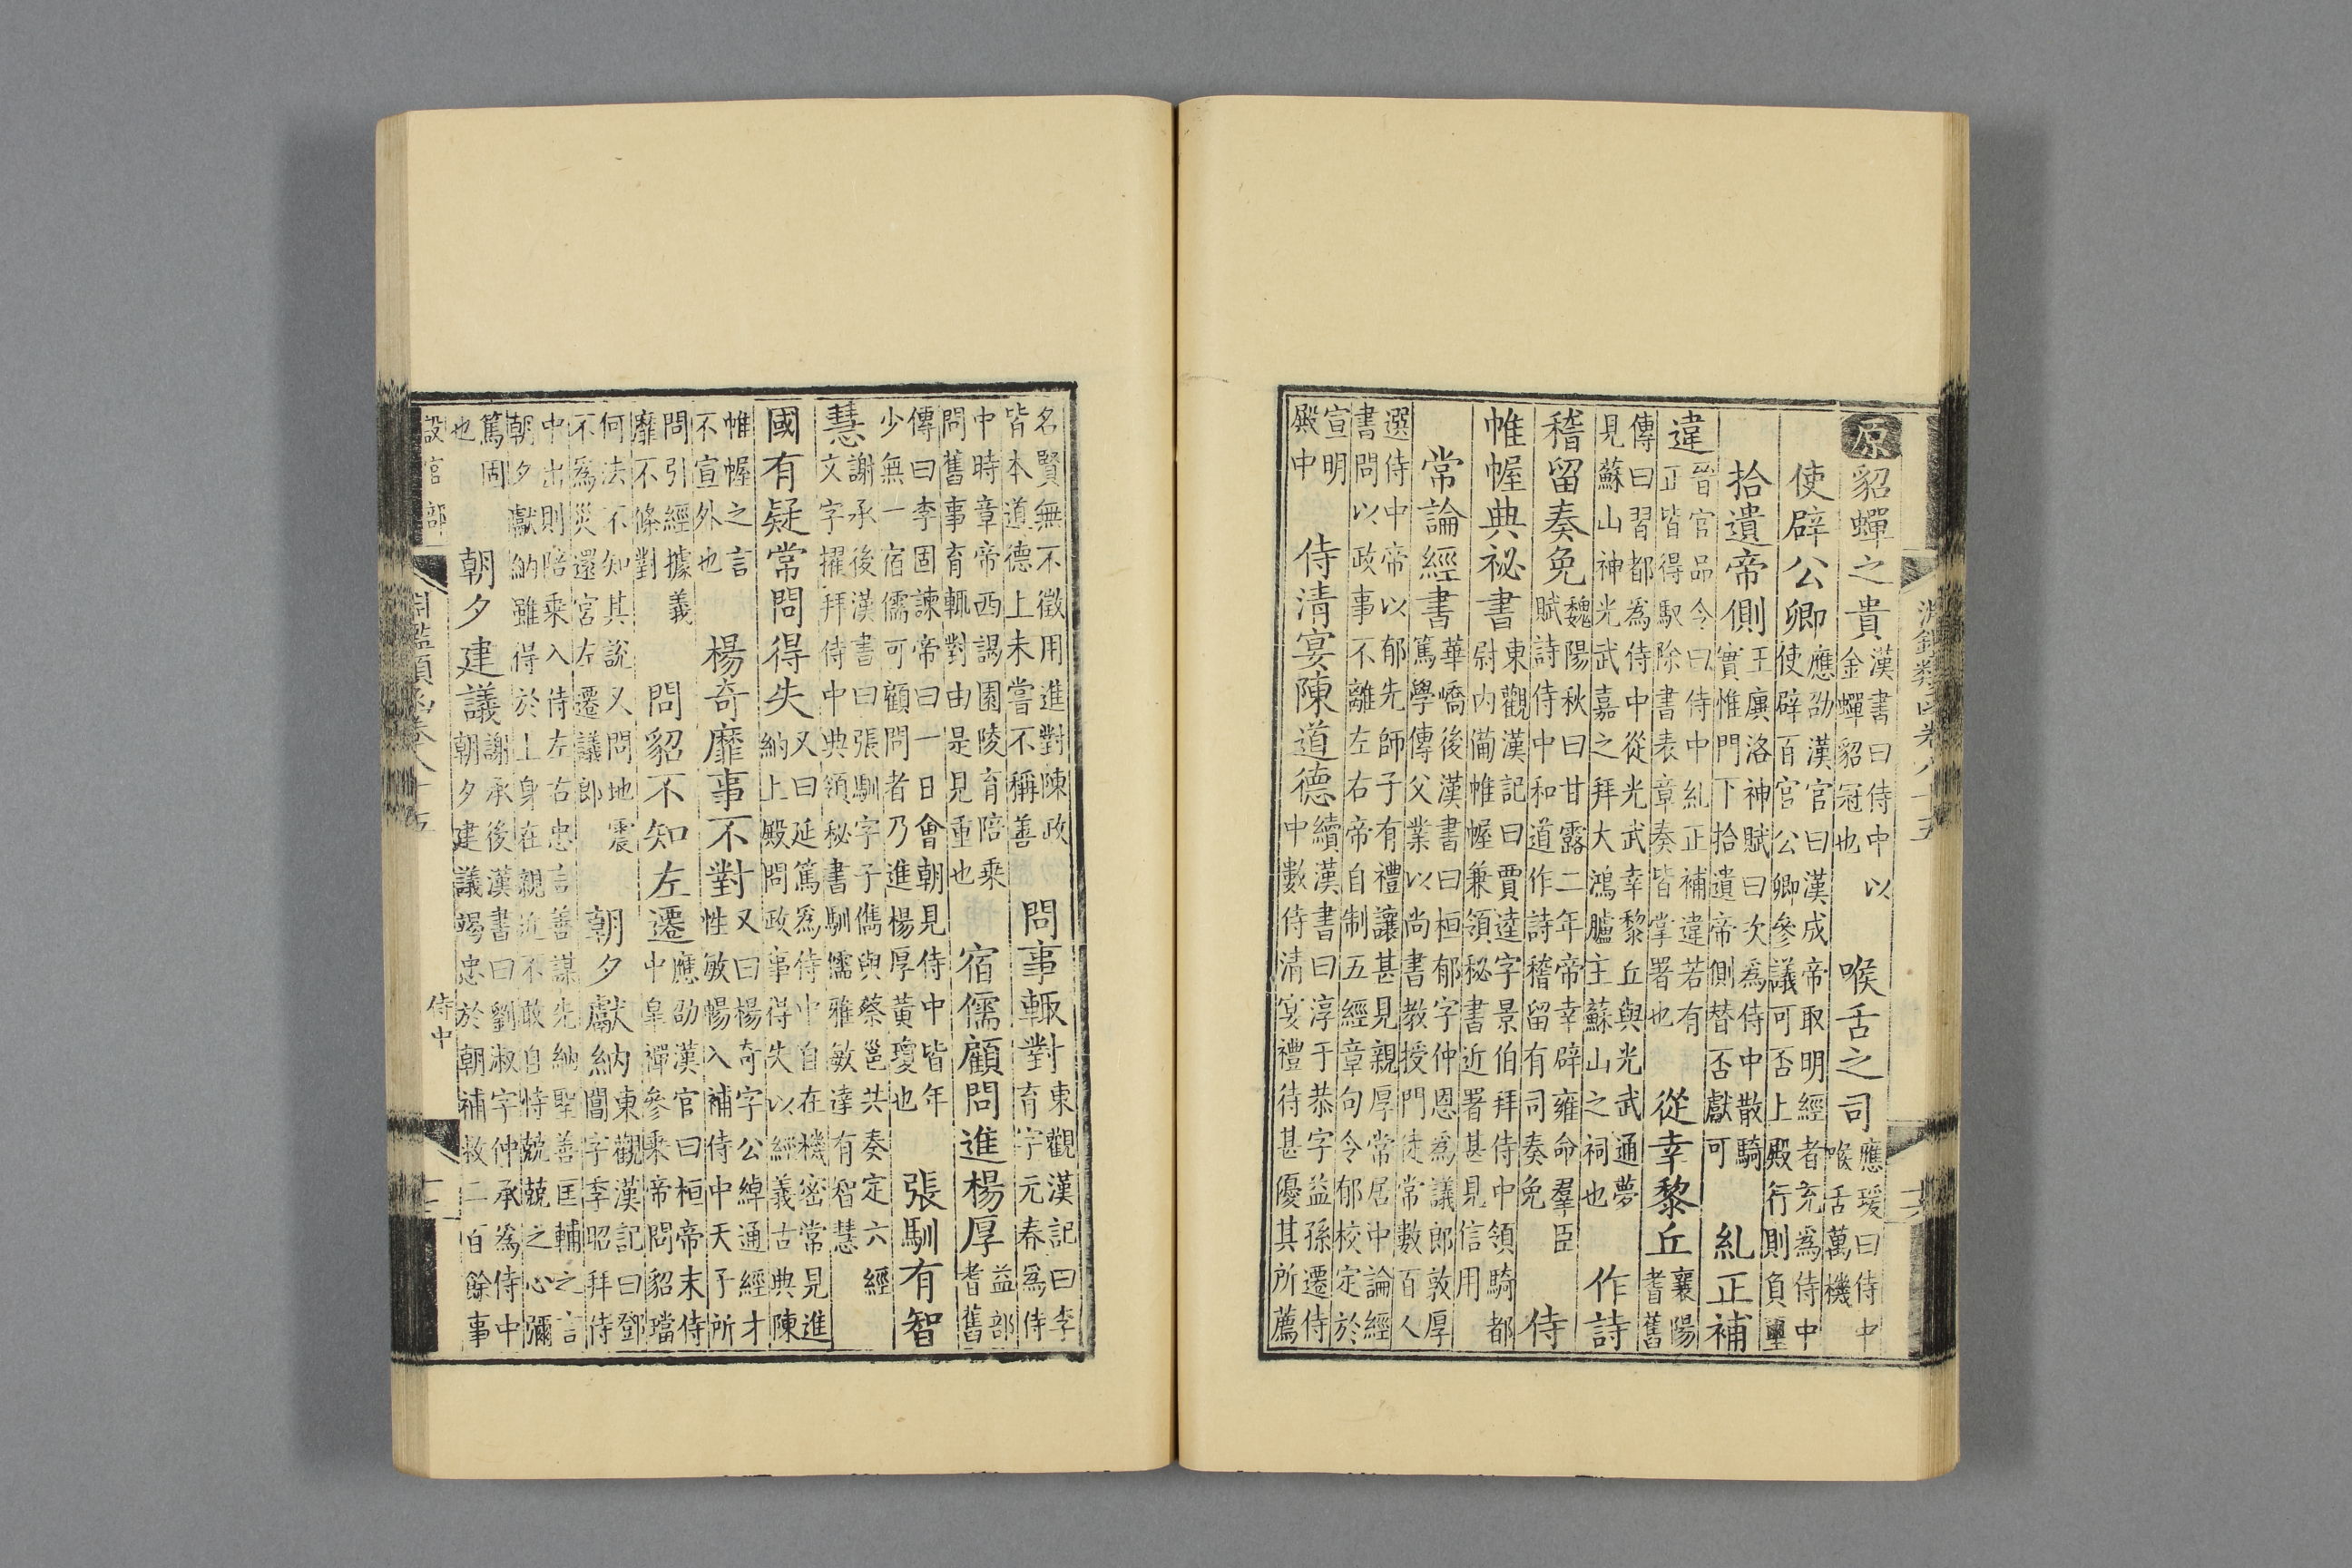 淵鑑類函卷八十五
原貂蟬之貴
漢書曰侍中以
金蟬貂冠也
喉舌之司
應瑗曰侍中
喉舌萬機
使辟公卿
應劭漢官曰漢成帝取明經者充為侍中
使辟百官公卿參議可否上殿行則負璽
拾遺帝側
王廙洛神賦曰次為侍中散騎
實惟門下拾遺帝側替否獻可
糾正補
違
晉官品令曰侍中糾正補違若有
正皆得馭除書表章奏皆掌署也
從幸黎丘
襄陽
耆舊
傳曰習郁為侍中從光武幸黎丘與光武通夢
見蘇山神光武嘉之拜大鴻臚主蘇山之祠也
作詩
稽留奏免
魏陽秋曰甘露二年帝幸辟雍命羣臣
賦詩侍中和道作詩稽留有司奏免
侍
帷幄典祕書
東觀漢記曰賈逵字景伯拜侍中領騎都
尉內備帷幄兼領秘書近署甚見信用
常論經書
華嶠後漢書曰桓郁字仲恩為議郎敦厚
篤學傳父業以尚書教授門徒常數百人
選侍中帝以郁先師子有禮讓甚見親厚常居中論經
書問以政事不離左右帝自制五經章句令郁校定於
宣明
殿中
侍清宴陳道德
續漢書曰淳于恭字益孫遷侍
中數侍清宴禮待甚優其所薦
名賢無不徵用進對陳政
皆本道德上未嘗不稱善
問事輒對
東觀漢記曰李
育字元春為侍
中時章帝西謁園陵育陪乘
問舊事育輒對由是見重也
宿儒顧問進楊厚
益部
耆舊
傳曰李固諫帝曰一日會朝見侍中皆年
少無一宿儒可顧問者乃進楊厚黃瓊也
張馴有智
慧
謝承後漢書曰張馴字子儁與蔡邕共奏定六經
文字擢拜侍中典領秘書馴儒雅敏達有智慧
國有疑常問得失
又曰延篤為侍中自在機密常見進
納上殿問政事得失以經義古典陳
帷幄之言
不宣外也
楊奇靡事不對
又曰楊奇字公綽通經才
性敏暢入補侍中天子所
問引經據義
靡不條對
問貂不知左遷
應劭漢官曰桓帝末侍
中皇禪參乘帝問貂璫
何法不知其說又問地震
不為災還宮左遷議郎
朝夕獻納
東觀漢記曰鄧
閶字季昭拜侍
中出則陪乘入侍左右忠言善謀先納聖善匡輔之言
朝夕獻納雖得於上身在親近不敢自恃兢兢之心彌
篤固
也
朝夕建議
謝承後漢書曰劉淑字仲承為侍中
朝夕建議竭忠於朝補救二百餘事
設官部
侍中